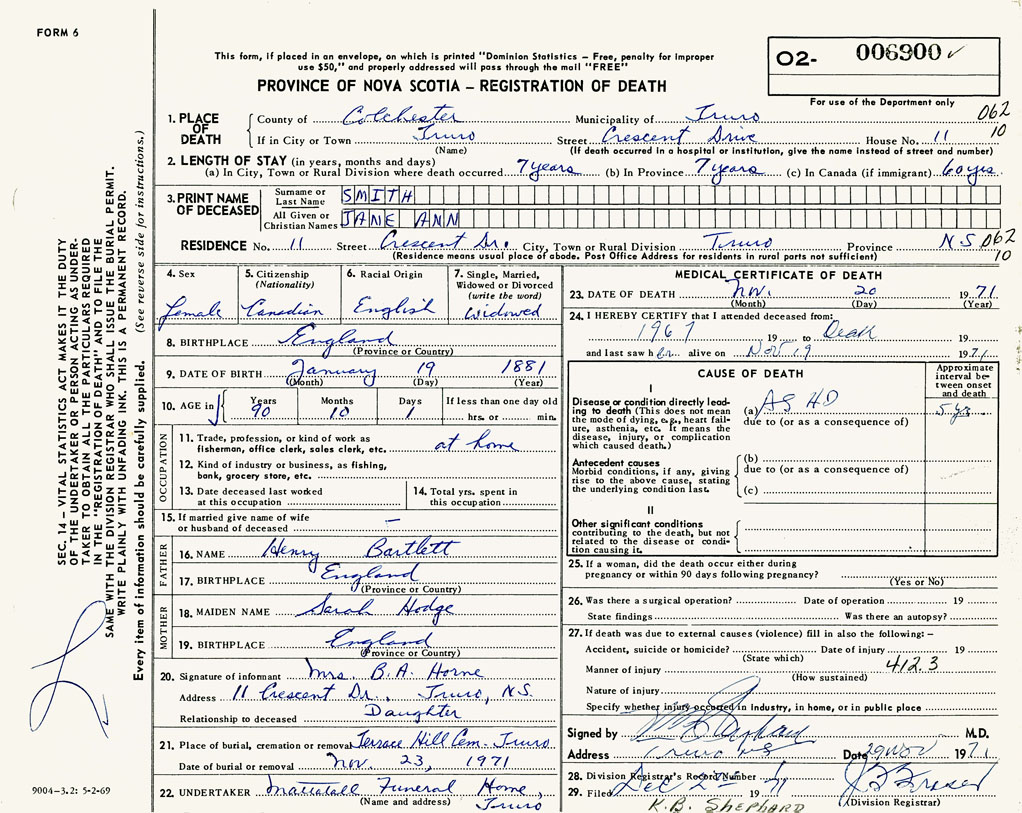 FORM 6
This form, if placed in an envelope, on which is printed "Dominion Statistics – Free, penalty for improper
use $50," and properly addressed will pass through the mail "FREE"
O2- 006900 ✓
PROVINCE OF NOVA SCOTIA – REGISTRATION OF DEATH
For use of the Department only
1. PLACE OF DEATH County of Colchester Municipality of Truro 062
If in City or Town Truro Street Crescent Drive House No. 11 10
(Name) (If death occurred in a hospital or institution, give the name instead of street and number)
2. LENGTH OF STAY (in years, months and days)
(a) In City, Town or Rural Division where death occurred 7 years (b) In Province 7 years (c) In Canada (if immigrant) 60 yrs
3. PRINT NAME OF DECEASED Surname or Last Name SMITH
All Given or Christian Names JANE ANN
RESIDENCE No. 11 Street Crescent Dr. City, Town or Rural Division Truro Province N.S 062
(Residence means usual place of abode. Post Office Address for residents in rural parts not sufficient) 10
4. Sex female
5. Citizenship (Nationality) Canadian
6. Racial Origin English
7. Single, Married, Widowed or Divorced (write the word) Widowed
8. BIRTHPLACE England
(Province or Country)
9. DATE OF BIRTH January 19 1881
(Month) (Day) (Year)
10. AGE in Years 90 Months 10 Days 1 If less than one day old hrs. or min.
OCCUPATION
11. Trade, profession, or kind of work as
fisherman, office clerk, sales clerk, etc. at home
12. Kind of industry or business, as fishing,
bank, grocery store, etc.
13. Date deceased last worked
at this occupation
14. Total yrs. spent in
this occupation
15. If married give name of wife
or husband of deceased –
FATHER
16. NAME Henry Bartlett
17. BIRTHPLACE England
(Province or Country)
MOTHER
18. MAIDEN NAME Sarah Hodge
19. BIRTHPLACE England
(Province or Country)
20. Signature of informant Mrs. B. A. Horne
Address 11 Crescent Dr., Truro, N.S.
Relationship to deceased Daughter
21. Place of burial, cremation or removal Terrace Hill Cem. Truro
Date of burial or removal Nov. 23, 1971
22. UNDERTAKER Mattatall Funeral Home,
(Name and address) Truro
MEDICAL CERTIFICATE OF DEATH
23. DATE OF DEATH Nov. 20 1971
(Month) (Day) (Year)
24. I HEREBY CERTIFY that I attended deceased from:
1967 19 to Death 19
and last saw her alive on Nov 19 1971
CAUSE OF DEATH
Approximate
interval be-
tween onset
and death
I
Disease or condition directly lead-
ing to death (This does not mean
the mode of dying, e.g., heart fail-
ure, asthenia, etc. It means the
disease, injury, or complication
which caused death.)
(a) AS HD 5 yr
due to (or as a consequence of)
Antecedent causes
Morbid conditions, if any, giving
rise to the above cause, stating
the underlying condition last.
(b)
due to (or as a consequence of)
(c)
II
Other significant conditions
contributing to the death, but not
related to the disease or condi-
tion causing it.
25. If a woman, did the death occur either during
pregnancy or within 90 days following pregnancy?
(Yes or No)
26. Was there a surgical operation? Date of operation 19
State findings Was there an autopsy?
27. If death was due to external causes (violence) fill in also the following: –
Accident, suicide or homicide? Date of injury 19
(State which)
Manner of injury 412.3
(How sustained)
Nature of injury
Specify whether injury occurred in Industry, in home, or in public place
Signed by M.D.
Address Truro NS Date 29 Nov 1971
28. Division Registrar's Record Number
29. Filed Dec 2nd 1971
(Division Registrar)
K.B. SHEPHARD
SEC. 14 – VITAL STATISTICS ACT MAKES IT THE DUTY
OF THE UNDERTAKER OR PERSON ACTING AS UNDER-
TAKER TO OBTAIN ALL THE PARTICULARS REQUIRED
IN THE "REGISTRATION OF DEATH" AND TO FILE THE
SAME WITH THE DIVISION REGISTRAR WHO SHALL ISSUE THE BURIAL PERMIT.
WRITE PLAINLY WITH UNFADING INK. THIS IS A PERMANENT RECORD.
Every item of information should be carefully supplied. (See reverse side for instructions.)
9004-3.2: 5-2-69